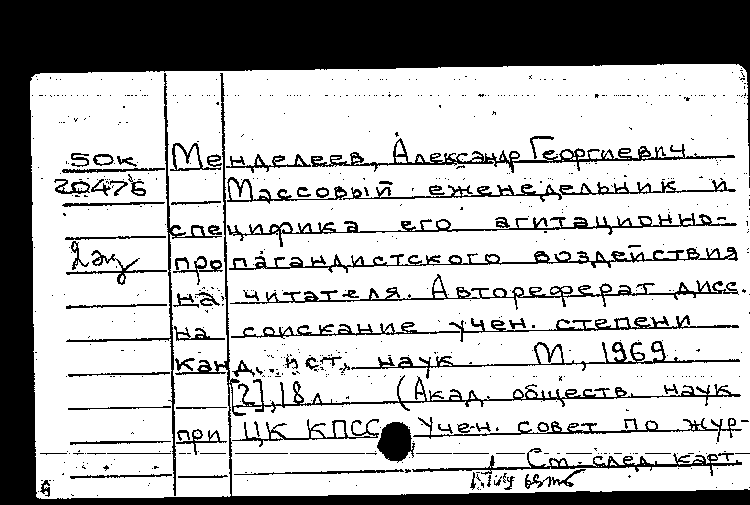 50к Менделеев, Александр Георгиевич.
20476 Массовый еженедельник и
специфика его агитационно-
2 экз пропагандистского воздействия
на читателя. Автореферат дисс.
на соискание учен. степени
канд. ист. наук. М., 1969.
[2], 18 л. (Акад. обществ. наук
при ЦК КПСС Учен. совет по жур-
См. след. карт.